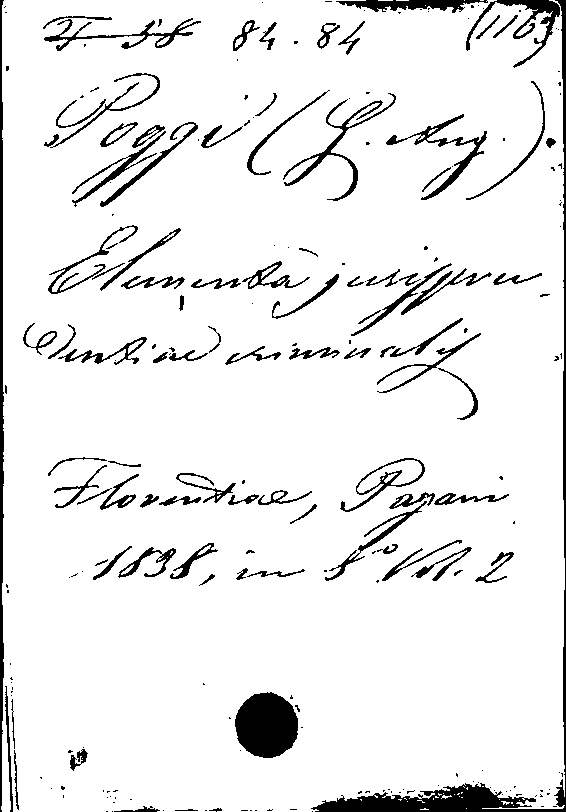 F. 58 84.84 (1163)
Poggi (G. Aug.).
Elementa jurispru-
dentiae criminalis
Florentiae, Pagani
1838, in 8º Vol. 2